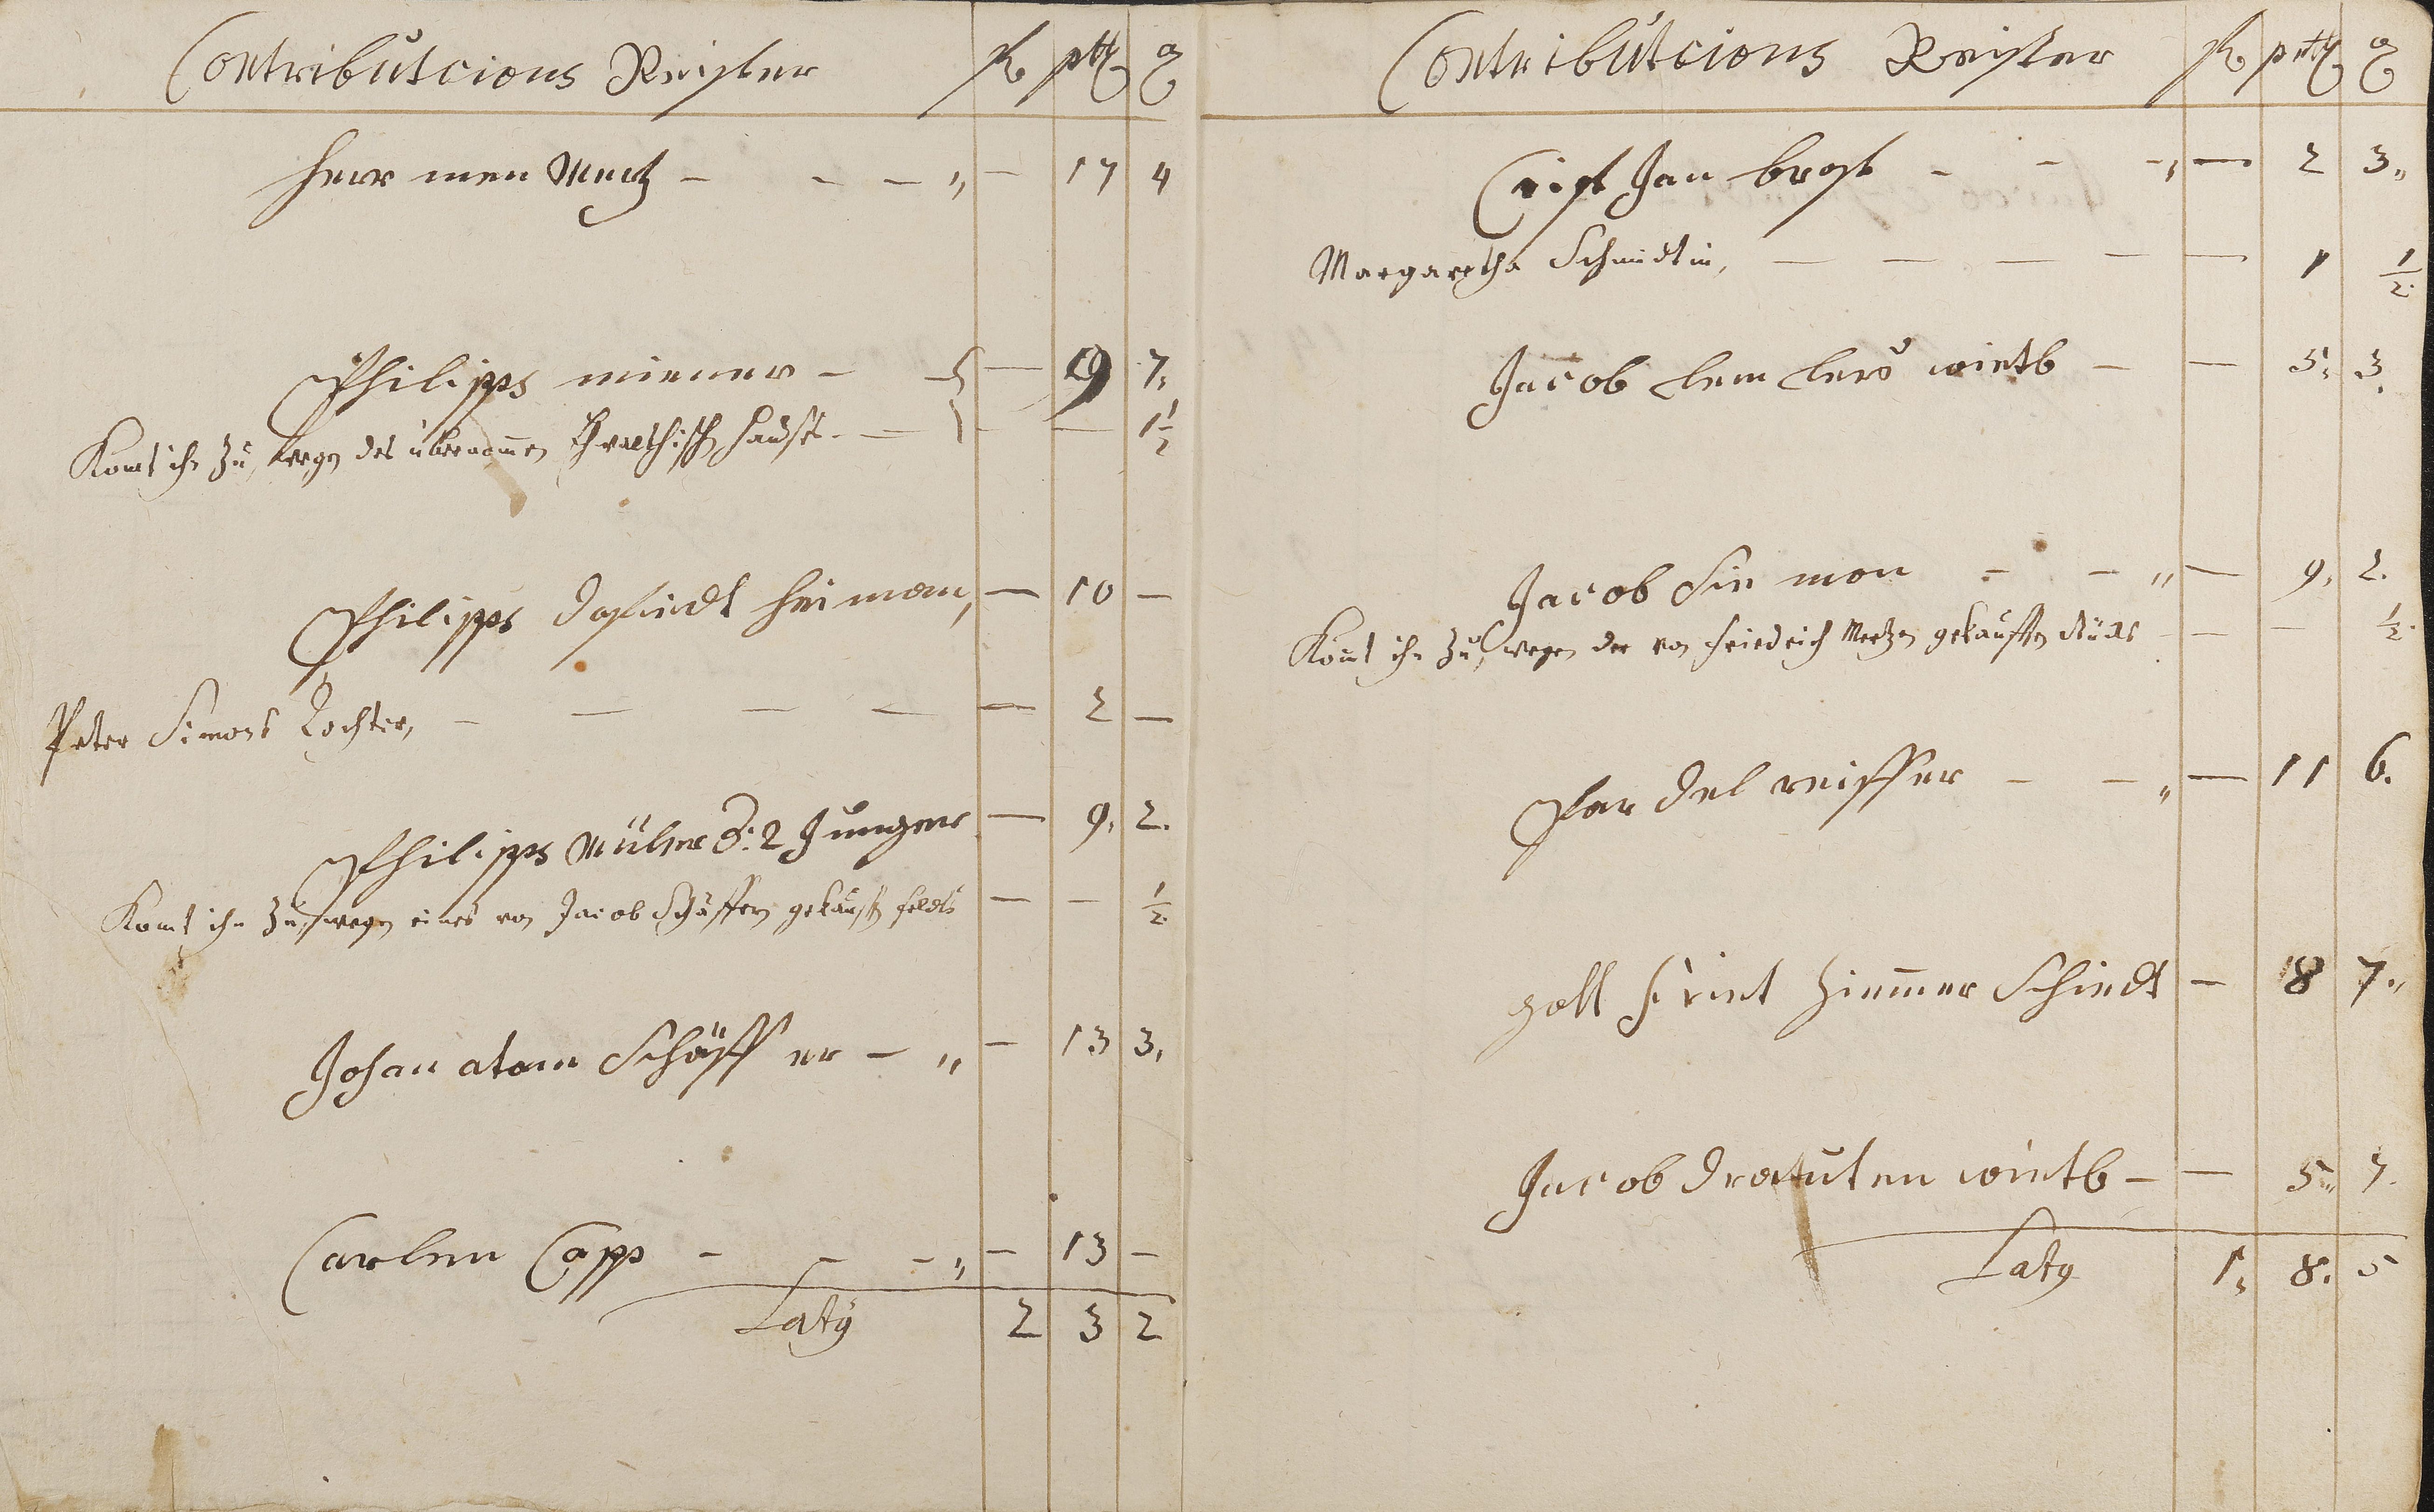 Contributcions Reister fl ptz ₰
Herr men Mertz - - - " - 17 4
Philipps miener - - 19 7
Komt ihm zu, wegen des übernommen hauses - - - 1 1/2
Philipps heiman, - 10 -
Peter Simons Tochter, - - - - - 2 -
Philipps Müller d: 2 Junger - 9, 2.
Komt ihm zu, wegen eines von Jacob Schäffern gekauften felds - - 1/2
Johan atam Schäffer - " - 13 3,
Carlen Capp - - - " - 13 -
Laty 2 3 2
Contributcions Reister fl ptz ₰
Crist Jan brost - - " - 2 3"
Margaretha Schmidtin, - - - - - 1 1/2
Jacob lem lers wietb - - 5, 3.
Jacob Sie mon - - " - 9, 2.
Komt ihm zu, wegen der von Friedrich Mertzen gekauften stücks - - - 1/2
Pardel reisser - - " - 11 6.
gott frint Ziemmer Schiedt - 18 7"
Jacob wietb - - 5" 7.
Laty 1, 8. 5